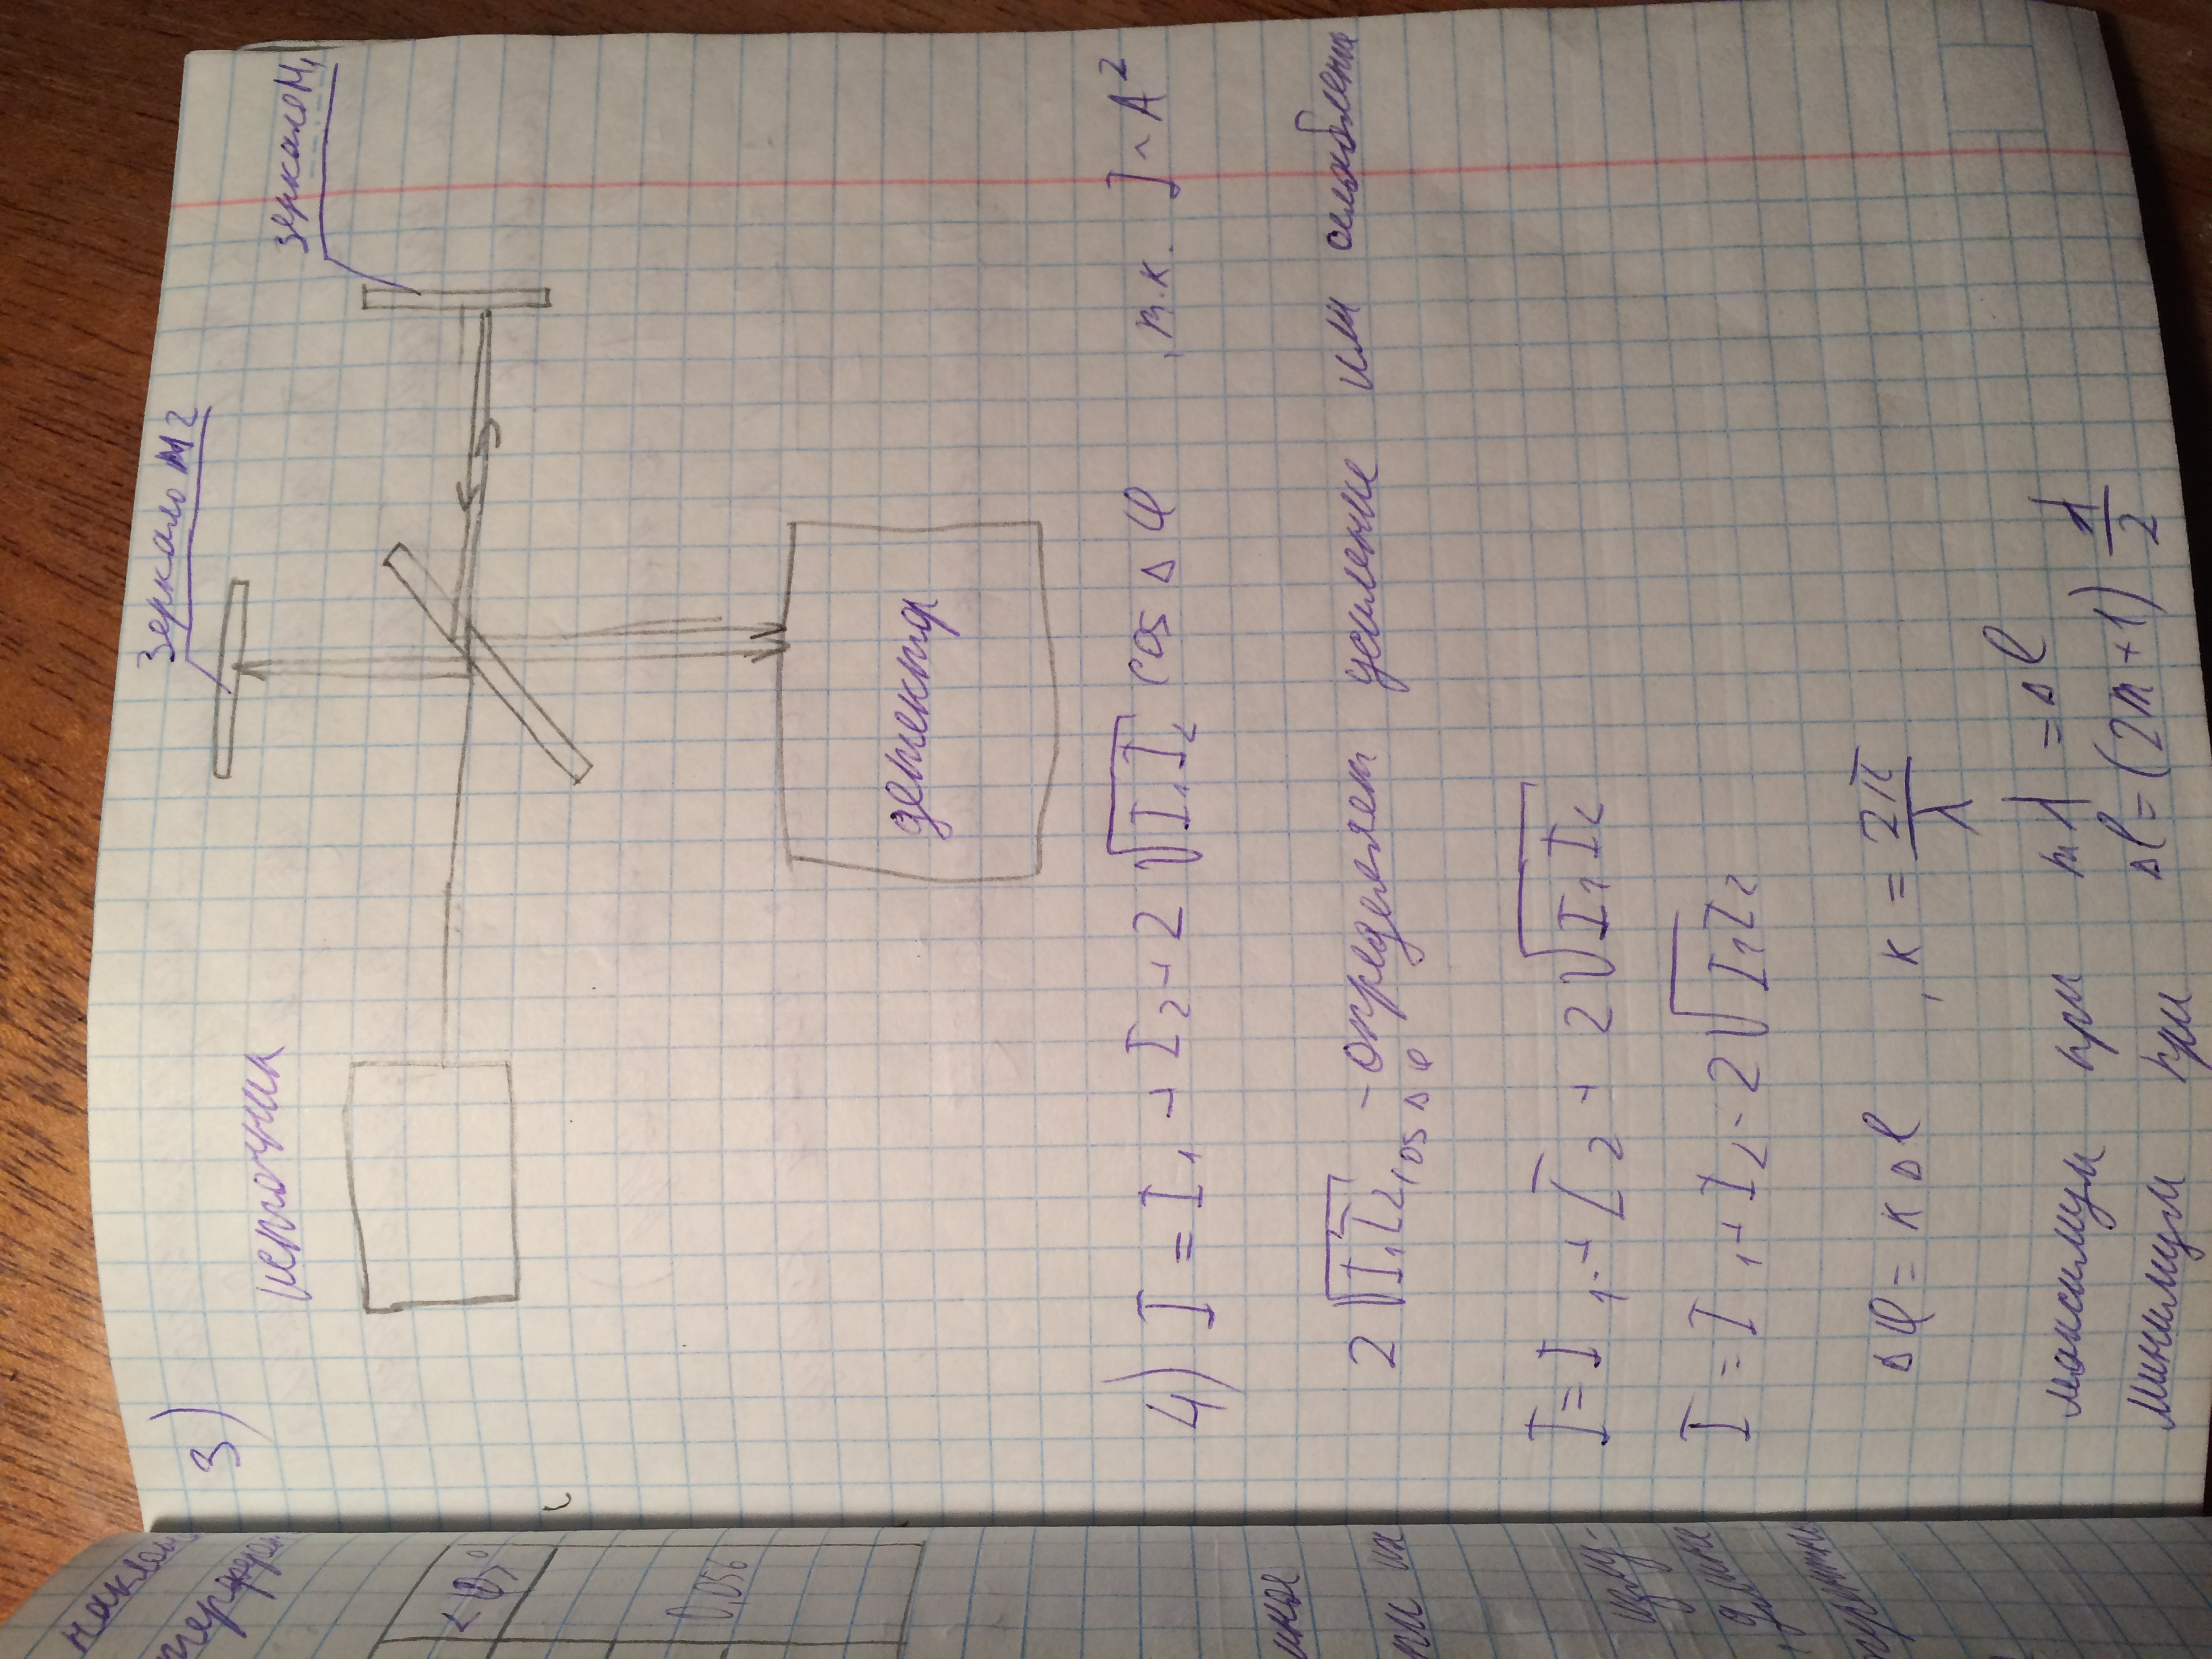 наклон
<φ>°
0,056
иное
при их
излу-
длине
3)
Зеркало М2
зеркало М₁
источник
детектор
4) I = I₁ + I₂ + 2√(I₁I₂) cos Δφ , т.к. I ~ A²
2√(I₁I₂) cos Δφ - определяет усиление или ослабление
I = I₁ + I₂ + 2√(I₁I₂)
I = I₁ + I₂ - 2√(I₁I₂)
Δφ = к Δl , к = 2π/λ
максимум при mλ = Δl
минимум при Δl = (2m+1) λ/2